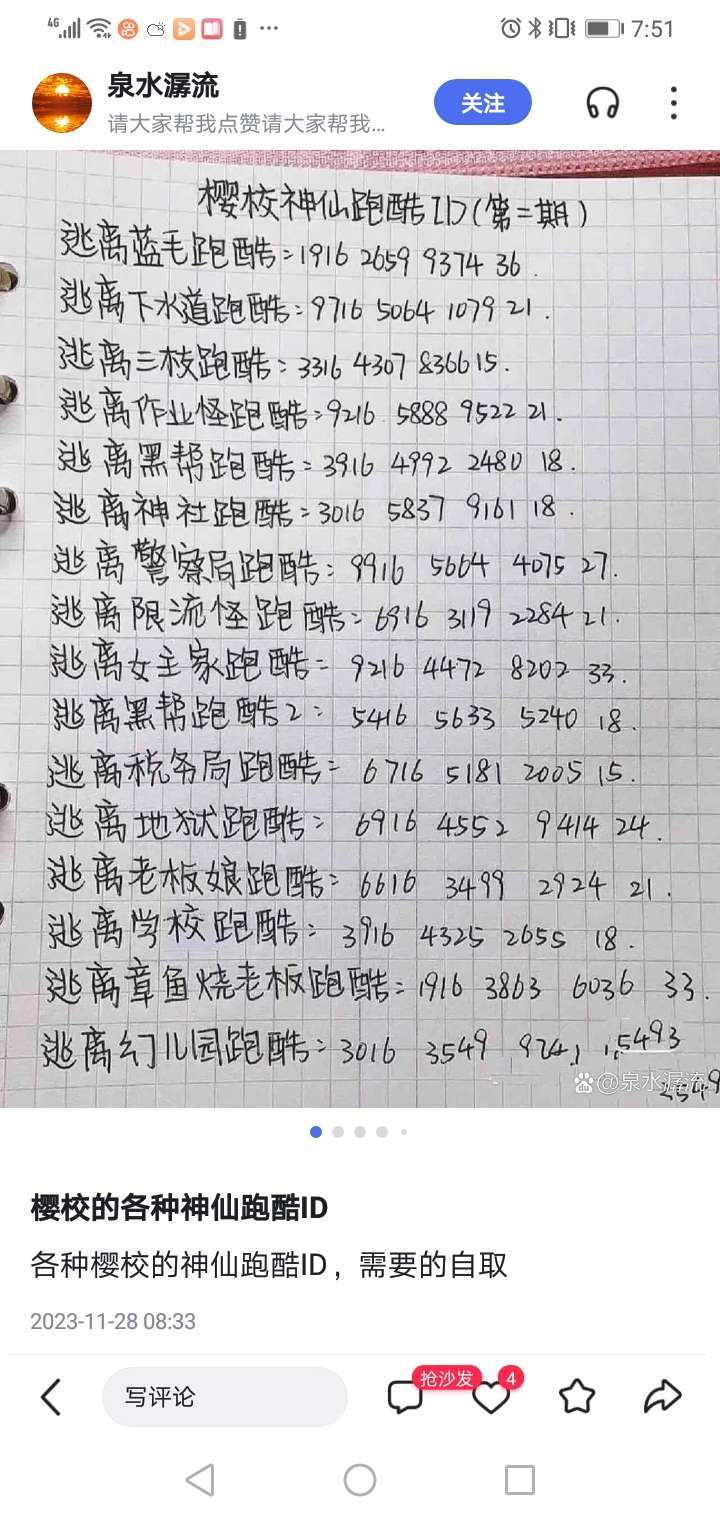 4G 7:51
泉水潺流
请大家帮我点赞请大家帮我...
关注
樱校神仙跑酷ID(第二期)
逃离蓝毛跑酷:1916 2659 9374 36.
逃离下水道跑酷:9716 5064 1079 21.
逃离三枝跑酷:3316 4307 8366 15.
逃离作业怪跑酷:9216 5888 9522 21.
逃离黑帮跑酷:3916 4992 2480 18.
逃离神社跑酷:3016 5837 9161 18.
逃离警察局跑酷:9916 5664 4075 27.
逃离限流怪跑酷:6916 3119 2284 21.
逃离女主家跑酷:9216 4472 8202 33.
逃离黑帮跑酷2:5416 5633 5240 18.
逃离税务局跑酷:6716 5181 2005 15.
逃离地狱跑酷:6916 4552 9414 24.
逃离老板娘跑酷:6616 3499 2924 21.
逃离学校跑酷:3916 4325 2655 18.
逃离章鱼烧老板跑酷:1916 3863 6036 33.
逃离幻儿园跑酷:3016 3549 5493
du @泉水潺流
樱校的各种神仙跑酷ID
各种樱校的神仙跑酷ID，需要的自取
2023-11-28 08:33
写评论
抢沙发
4